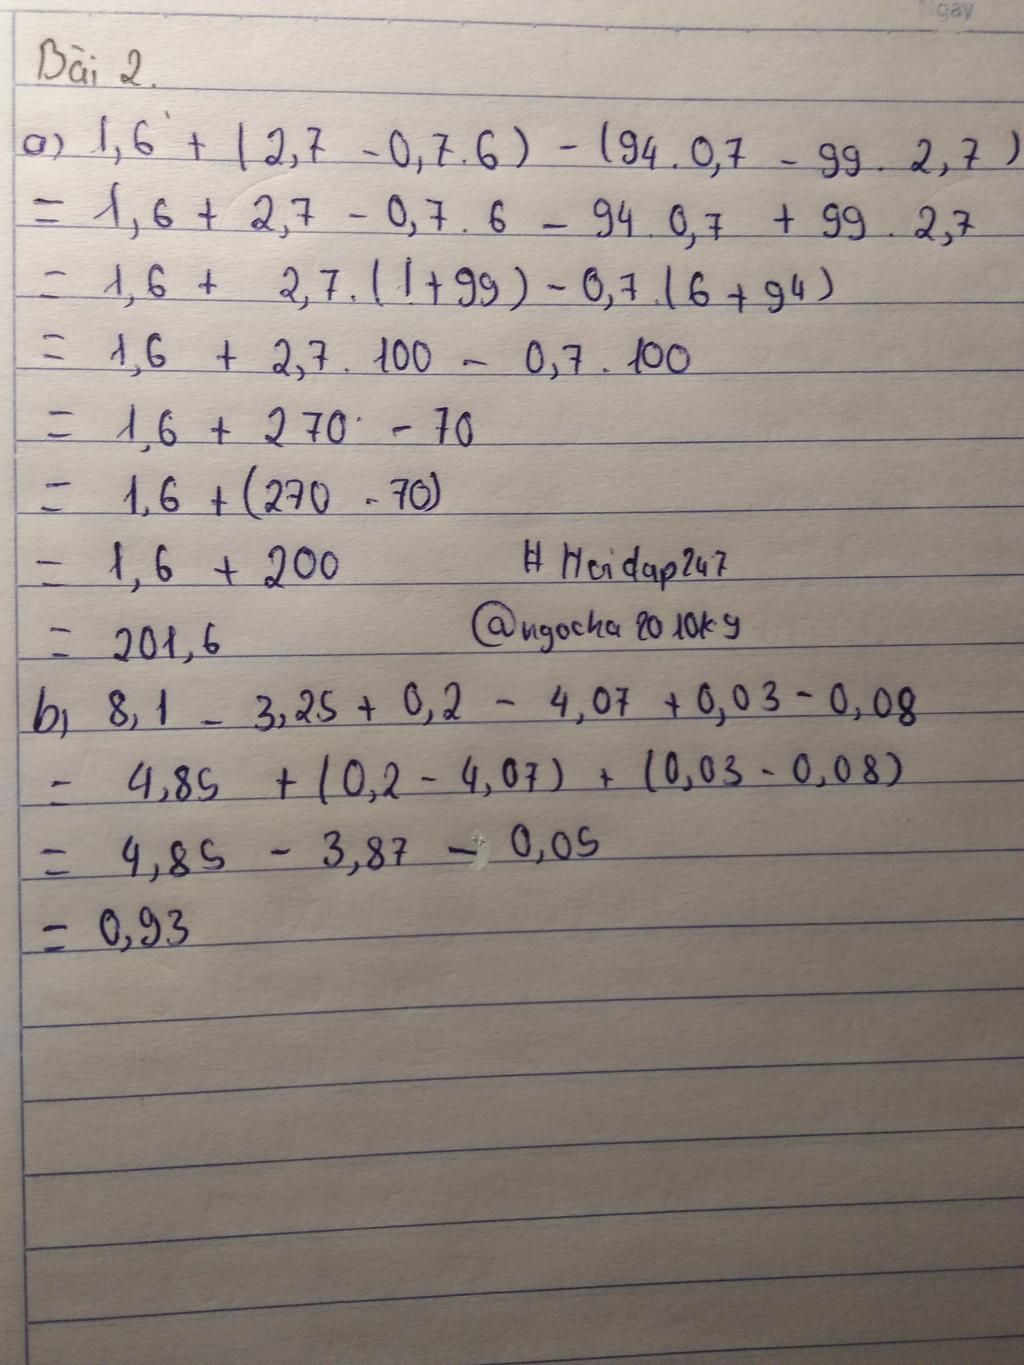 Ngay
Bài 2.
a) 1,6 + (2,7 - 0,7.6) - (94.0,7 - 99.2,7)
= 1,6 + 2,7 - 0,7.6 - 94.0,7 + 99.2,7
= 1,6 + 2,7.(1+99) - 0,7.(6+94)
= 1,6 + 2,7.100 - 0,7.100
= 1,6 + 270 - 70
= 1,6 + (270 - 70)
= 1,6 + 200 # Hoidap247
= 201,6 @ngocha2010ky
b) 8,1 - 3,25 + 0,2 - 4,07 + 0,03 - 0,08
= 4,85 + (0,2 - 4,07) + (0,03 - 0,08)
= 4,85 - 3,87 - 0,05
= 0,93